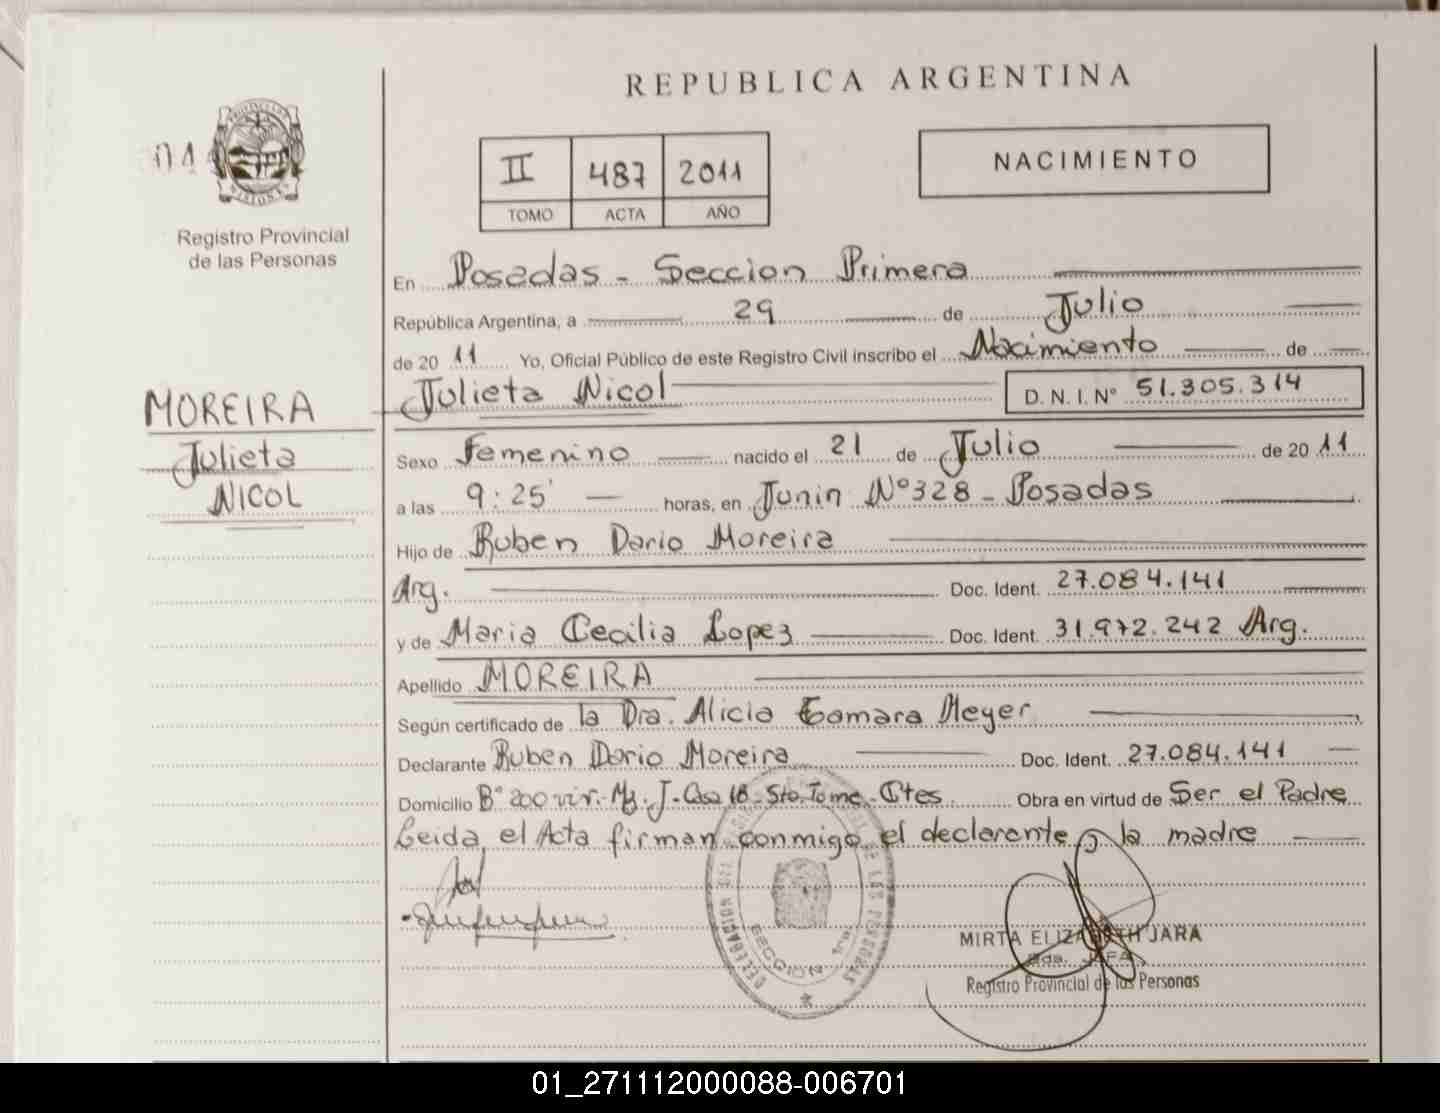 REPUBLICA ARGENTINA
PROVINCIA DE MISIONES
Registro Provincial
de las Personas
II 487 2011
TOMO ACTA AÑO
NACIMIENTO
En Posadas - Seccion Primera
República Argentina, a 29 de Julio
de 20 11 Yo, Oficial Público de este Registro Civil inscribo el Nacimiento de
Julieta Nicol D. N. I. Nº 51.305.314
MOREIRA
Julieta
NICOL
Sexo Femenino nacido el 21 de Julio de 20 11
a las 9:25' horas, en Junin Nº 328 - Posadas
Hijo de Ruben Dario Moreira
Arg. Doc. Ident. 27.084.141
y de Maria Cecilia Lopez Doc. Ident. 31.972.242 Arg.
Apellido MOREIRA
Según certificado de la Dra. Alicia Tamara Meyer
Declarante Ruben Dario Moreira Doc. Ident. 27.084.141
Domicilio Bº 200 viv.- Mz. J- Casa 18- Sto. Tome - Ctes Obra en virtud de Ser el Padre
Leida el Acta firman conmigo el declarante y la madre
DE LAS PERSONAS
SECCION 1ra
MIRTA ELIZABETH JARA
Registro Provincial de las Personas
01_271112000088-006701